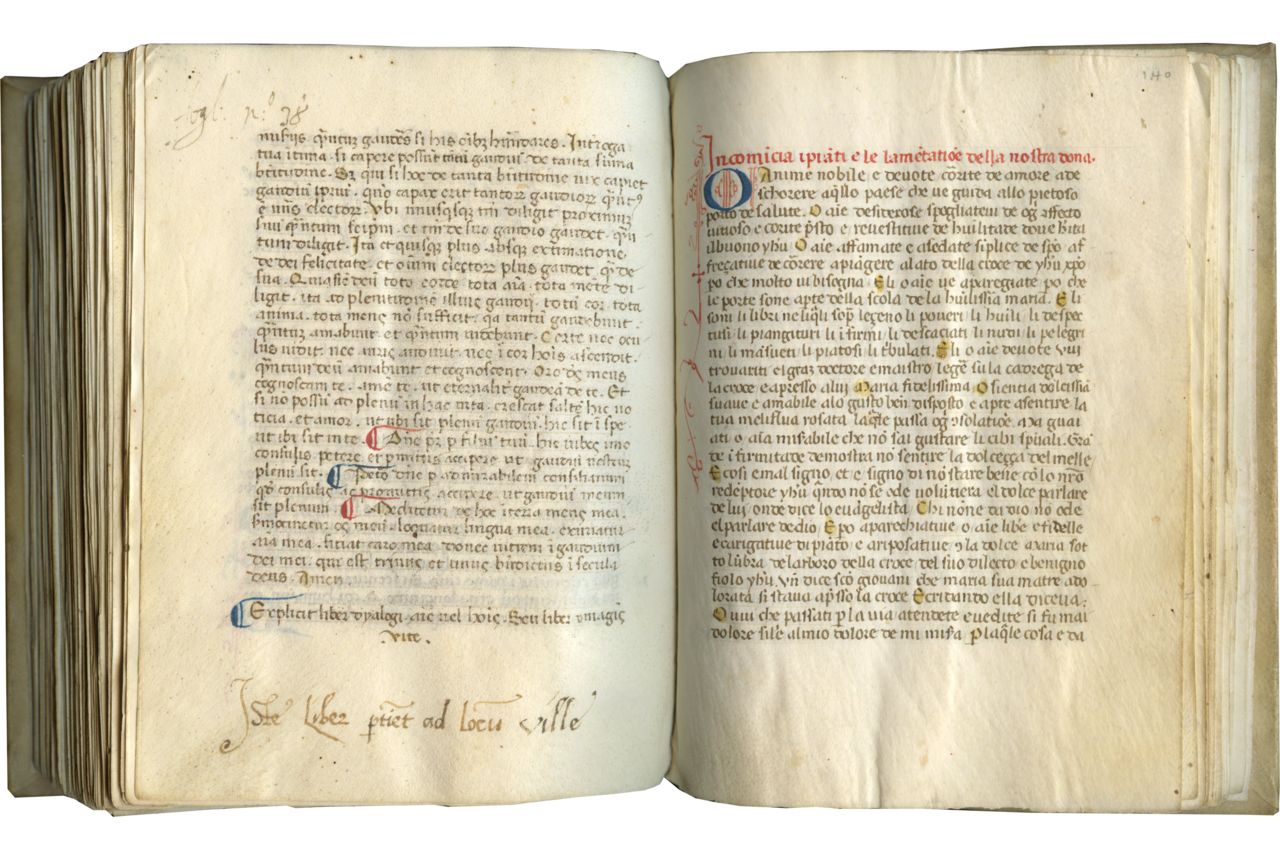 fogl: n.º 38
nusijs q̃ntur gaudẽs si his oĩbꝫ habũdares. Interroga
tua ĩtima. si capere possũt totũ gaudiũ de tanta suma
btitudine. Sꝫ qui si hoc de tanta btitudine vix capiet
gaudiũ ipriũ. quo capax erit tantoꝝ gaudioꝝ
electoꝝ. Vbi unusqisqꝫ diligit proximũ
suũ q̃ntum seipm. et de suo gaudio gaudet. q̃n
tum diligit. Ita et quisqꝫ plus absqꝫ extimatione.
de dei felicitate. et oĩum electoꝝ plus gaudet q̃ de
sua. Quasi deũ toto corde tota aĩa. tota mẽte di
ligit. ita ad plenitudinẽ illius gaudij. totũ cor. tota
anima. tota mens nõ sufficit. q̃a tantũ gaudebunt.
q̃ntur amabunt. et q̃ntum videbunt. Certe nec ocu
lus vidit. nec auris audivit. nec ĩ cor hoĩs ascendit.
q̃ntum deũ amabunt et cognoscent. Oro de9 meus
cognoscam te. ame te. ut eternalit gaudea de te. Et
si no possũ ad plenũ in hac vita. crescat saltẽ hic no
ticia. et amor. ut ubi sit plenũ gaudiũ. hic sit ĩ spe
ut ibi sit in re. ¶ Dñe pr̃ p filiũ tuũ. hic iubes imo
consulis petere. et pmittis accipere ut gaudiũ nostrum
plenũ sit. ¶ Peto dñe p admirabilem consiliariũ
qd consulis ac promittis accipere. ut gaudiũ meum
sit plenum. ¶ Meditetur de hoc iterea mens mea.
smocinetur os meũ. loquatur lingua mea. exuriatur
aĩa mea. sitiat caro mea. donec intrem ĩ gaudium
dei mei. qui est trinus et unus bn̄dictus ĩ secula
deus. Amen.
¶ Explicit liber dyalogi. aĩe vel hoĩs. Seu liber ymagis
vite.
Iste Liber ptiẽt ad locũ ville
140
Incomicia ipiãti e le lamẽtatiõe della nostra dona.
O Anime nobile e devote cõrite de amore a de
schorere aq̃llo paese che ve guida allo pietoso
porto de salute. O aĩe desiderose spogliateui de og affecto
uitioso e corite p̃sto e reuestitiue de huilitade doue hita
il buono yhu. O aĩe affamate e asedate siplice de spo af
freçatiue de cõrere a piãgere alato della croce de yhu xpo
po che molto ui bisogna. Eli o aĩe ue aparegiate. po che
le porte sone apte della scola de la hũilissĩa maria. Eli
soni li libri neliq̃li sop̃ legeno li poueri li huili. li despec
tusi. li piangituri li ĩfirmi. li descaciati li nudi li pelegri
ni li masueti li piatosi li tbulati. Eli o aĩe deuote vui
trouariti el grã doctore e maistro legẽ su la cadrega de
la croce e apresso a lui Maria fidelissima. O sientia dolcissĩa
suaue e amabile alo gusto ben disposto e apte a sentire la
tua meliflua rosata laq̃le passa og solatioe. axa guai
ati o aĩa misabile che nõ sai gustare li cibi spũali. Grã
de ĩfirmitade demostra nõ sentire la dolcegga del melle
E cosi e mal signo. et e signo di nõ stare bene cõ lo nr̃o
redẽptore yhu q̃ndo nõ se ode volũtiera el dolce parlare
de lui onde dice lo euãgelista. Chi none da dio nõ ode
el parlare de dio. E po aparechiatiue o aĩe libe e fidelle
e carigatiue di piãto e ariposative ꝯ la dolce axaria sot
to lũbra de larboro della croce del suo dilecto e benigno
fiolo yhu. Vñ dice scõ giouani che maria sua matre ado
lorata si staua ap̃sso la croce Ecridando ella diceua.
O vui che passati p la via atendete e vedite si fu mai
dolore sile al mio dolore de mi misa. P laq̃le cosa e da